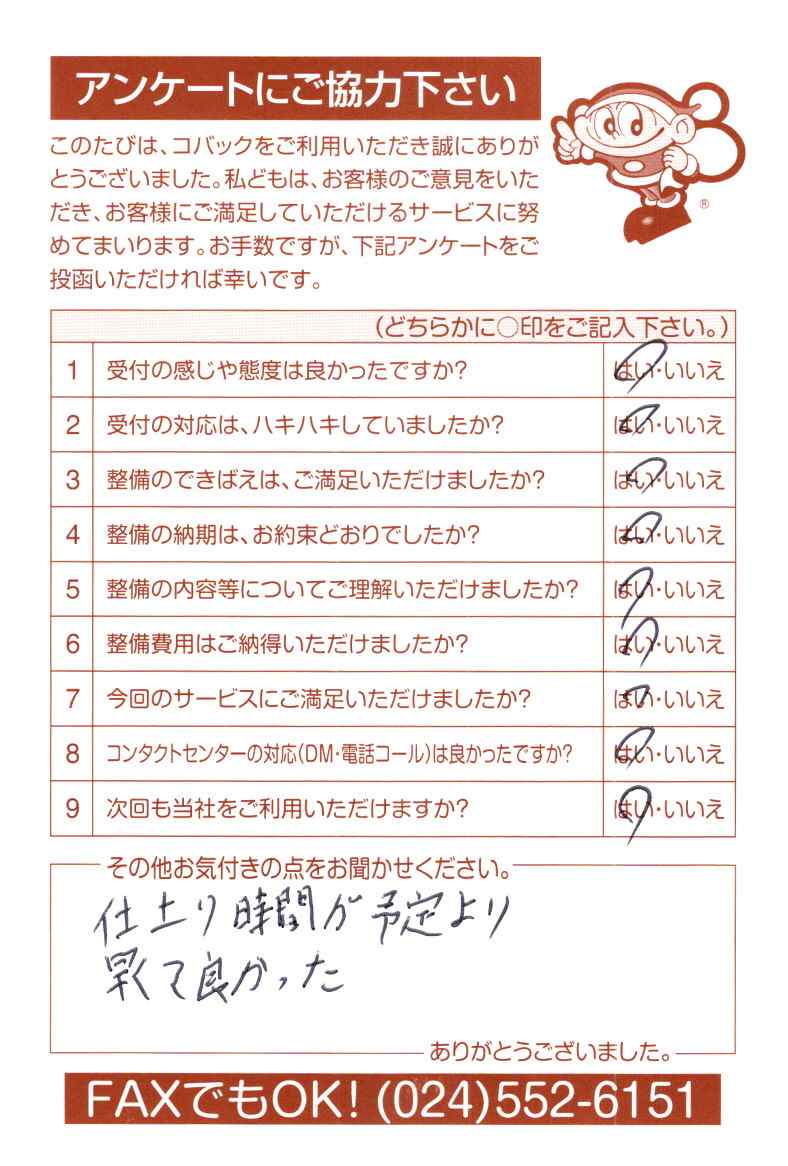 アンケートにご協力下さい
このたびは、コバックをご利用いただき誠にありが
とうございました。私どもは、お客様のご意見をいた
だき、お客様にご満足していただけるサービスに努
めてまいります。お手数ですが、下記アンケートをご
投函いただければ幸いです。
®
(どちらかに○印をご記入下さい。)
1 受付の感じや態度は良かったですか? はい・いいえ
2 受付の対応は、ハキハキしていましたか? はい・いいえ
3 整備のできばえは、ご満足いただけましたか? はい・いいえ
4 整備の納期は、お約束どおりでしたか? はい・いいえ
5 整備の内容等についてご理解いただけましたか? はい・いいえ
6 整備費用はご納得いただけましたか? はい・いいえ
7 今回のサービスにご満足いただけましたか? はい・いいえ
8 コンタクトセンターの対応(DM・電話コール)は良かったですか? はい・いいえ
9 次回も当社をご利用いただけますか? はい・いいえ
その他お気付きの点をお聞かせください。
仕上り時間が予定より
早くて良かった
ありがとうございました。
FAXでもOK! (024)552-6151